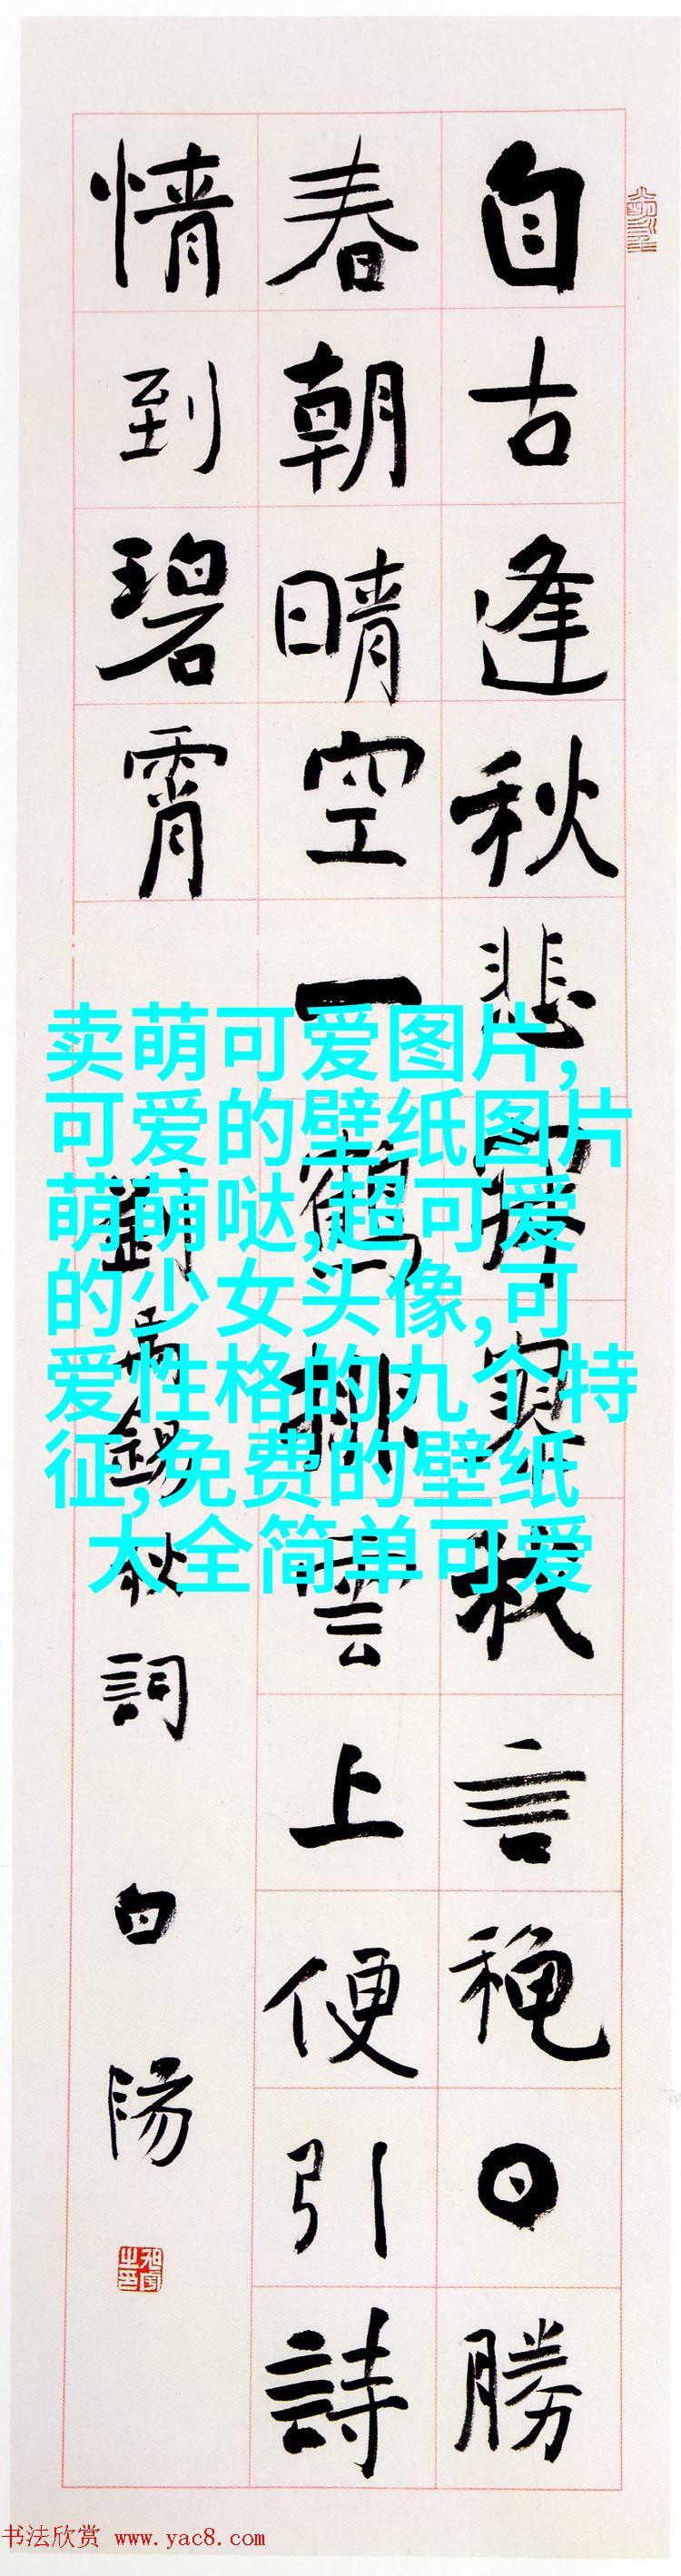 自古逢秋悲寂寥我言穐日勝
春朝晴空一鶴排雲上便引詩
情到碧霄
劉禹錫秋詞 白陽
卖萌可爱图片,
可爱的壁纸图片
萌萌哒,超可爱
的少女头像,可
爱性格的九个特
征,免费的壁纸
大全简单可爱
书法欣赏 www.yac8.com